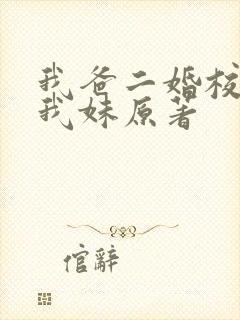 我爸二婚校
我妹原著
倌辭